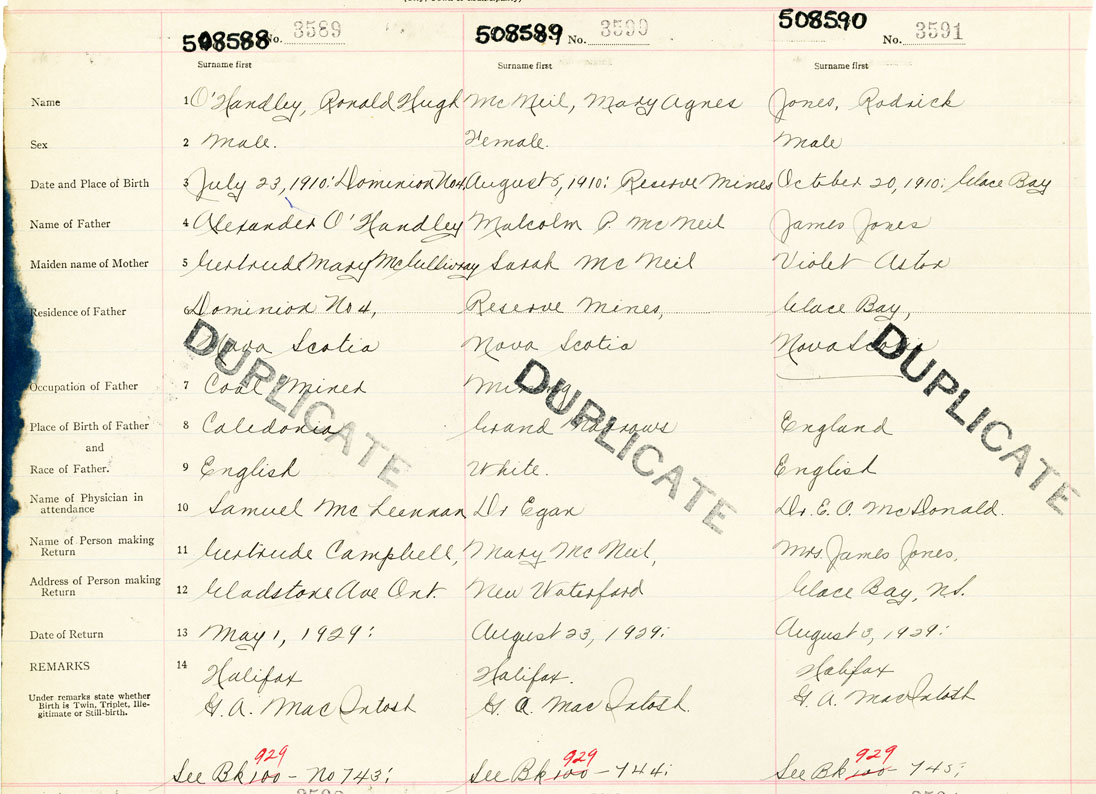 508588 No. 3589 508589 No. 3590 508590 No. 3591
Surname first Surname first Surname first
Name 1 O'Handley, Ronald Hugh McNeil, Mary Agnes Jones, Rodrick
Sex 2 Male. Female. Male
Date and Place of Birth 3 July 23, 1910: Dominion No 4, August 5, 1910: Reserve Mines October 20, 1910: Glace Bay
Name of Father 4 Alexander O'Handley Malcolm P. McNeil James Jones
Maiden name of Mother 5 Gertrude Mary McGullivray Sarah McNeil Violet Astor
Residence of Father 6 Dominion No 4, Reserve Mines, Glace Bay,
Nova Scotia Nova Scotia Nova Scotia
DUPLICATE DUPLICATE DUPLICATE
Occupation of Father 7 Coal Miner Mining
Place of Birth of Father 8 Caledonia Grand Narrows England
and
Race of Father. 9 English White. English
Name of Physician in
attendance 10 Samuel McLennan Dr Egan Dr. E. O. McDonald.
Name of Person making
Return 11 Gertrude Campbell, Mary McNeil, Mrs. James Jones,
Address of Person making
Return 12 Gladstone Ave Ont. New Waterford Glace Bay, N.S.
Date of Return 13 May 1, 1929: August 23, 1929: August 3, 1929:
REMARKS 14 Halifax Halifax. Halifax
Under remarks state whether
Birth is Twin, Triplet, Ille-
gitimate or Still-birth.
G. A. MacIntosh G. A. MacIntosh. G. A. MacIntosh
929 929 929
See Bk 100 - No 743: See Bk 100 - 744: See Bk 100 - 745: